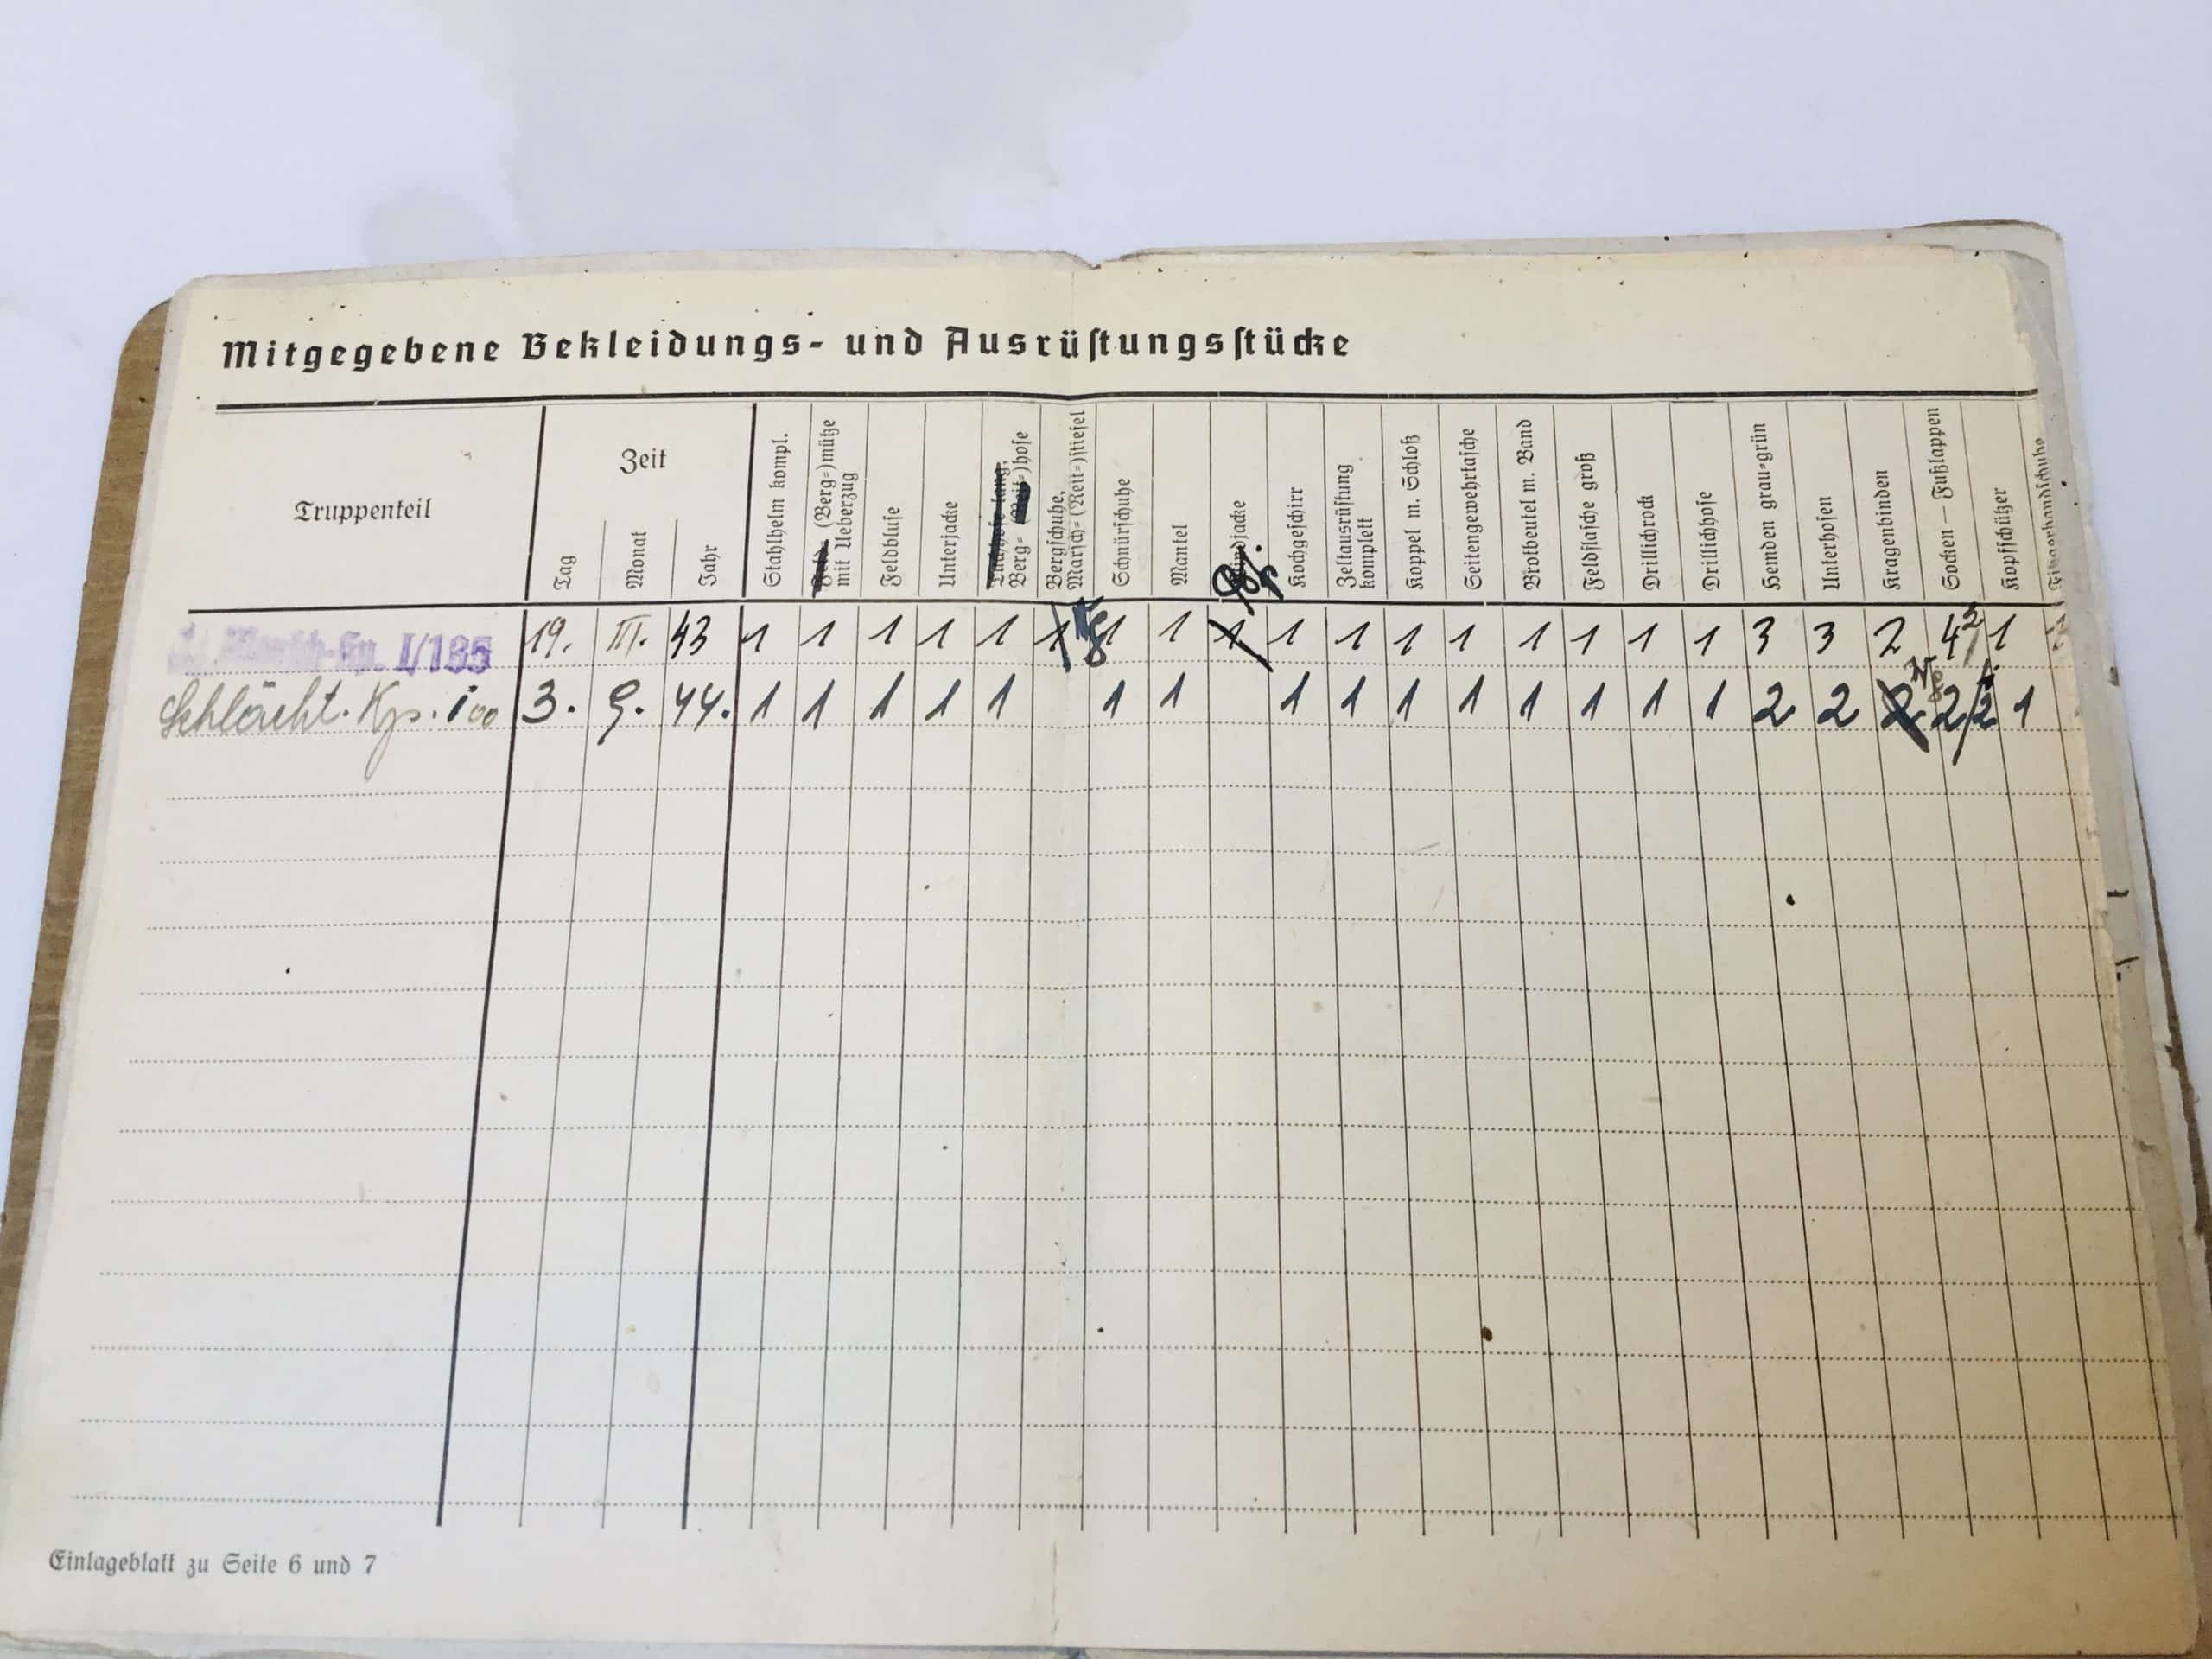 Mitgegebene Bekleidungs- und Ausrüstungsstücke
Truppenteil
Zeit
Tag
Monat
Jahr
Stahlhelm kompl.
(Berg-)mütze
mit Ueberzug
Feldbluse
Unterjacke
Berg- hose
Bergschuhe,
Marsch-(Reit-)stiefel
Schnürschuhe
Mantel
Kochgeschirr
Zeltausrüstung
komplett
Koppel m. Schloß
Seitengewehrtasche
Brotbeutel m. Band
Feldflasche groß
Drillichrock
Drillichhose
Hemden grau-grün
Unterhosen
Kragenbinden
Socken — Fußlappen
Kopfschützer
Fingerhandschuhe
I/135 19. III. 43 1 1 1 1 1 1 1 1 1 1 1 1 1 1 1 1 1 3 3 2 4/2 1
Schlächt. Kp. 3. 9. 44. 1 1 1 1 1 1 1 1 1 1 1 1 1 1 1 2 2 2 2/2 1
Einlageblatt zu Seite 6 und 7